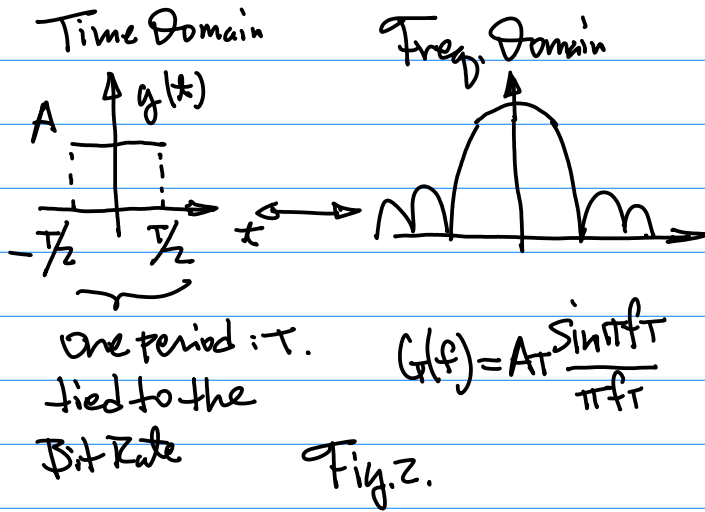 Time Domain
Freq. Domain
A
g(t)
-T/2
T/2
t
one period : T.
tied to the
Bit Rate
G(f) = AT sinπfT / πfT
Fig. 2.